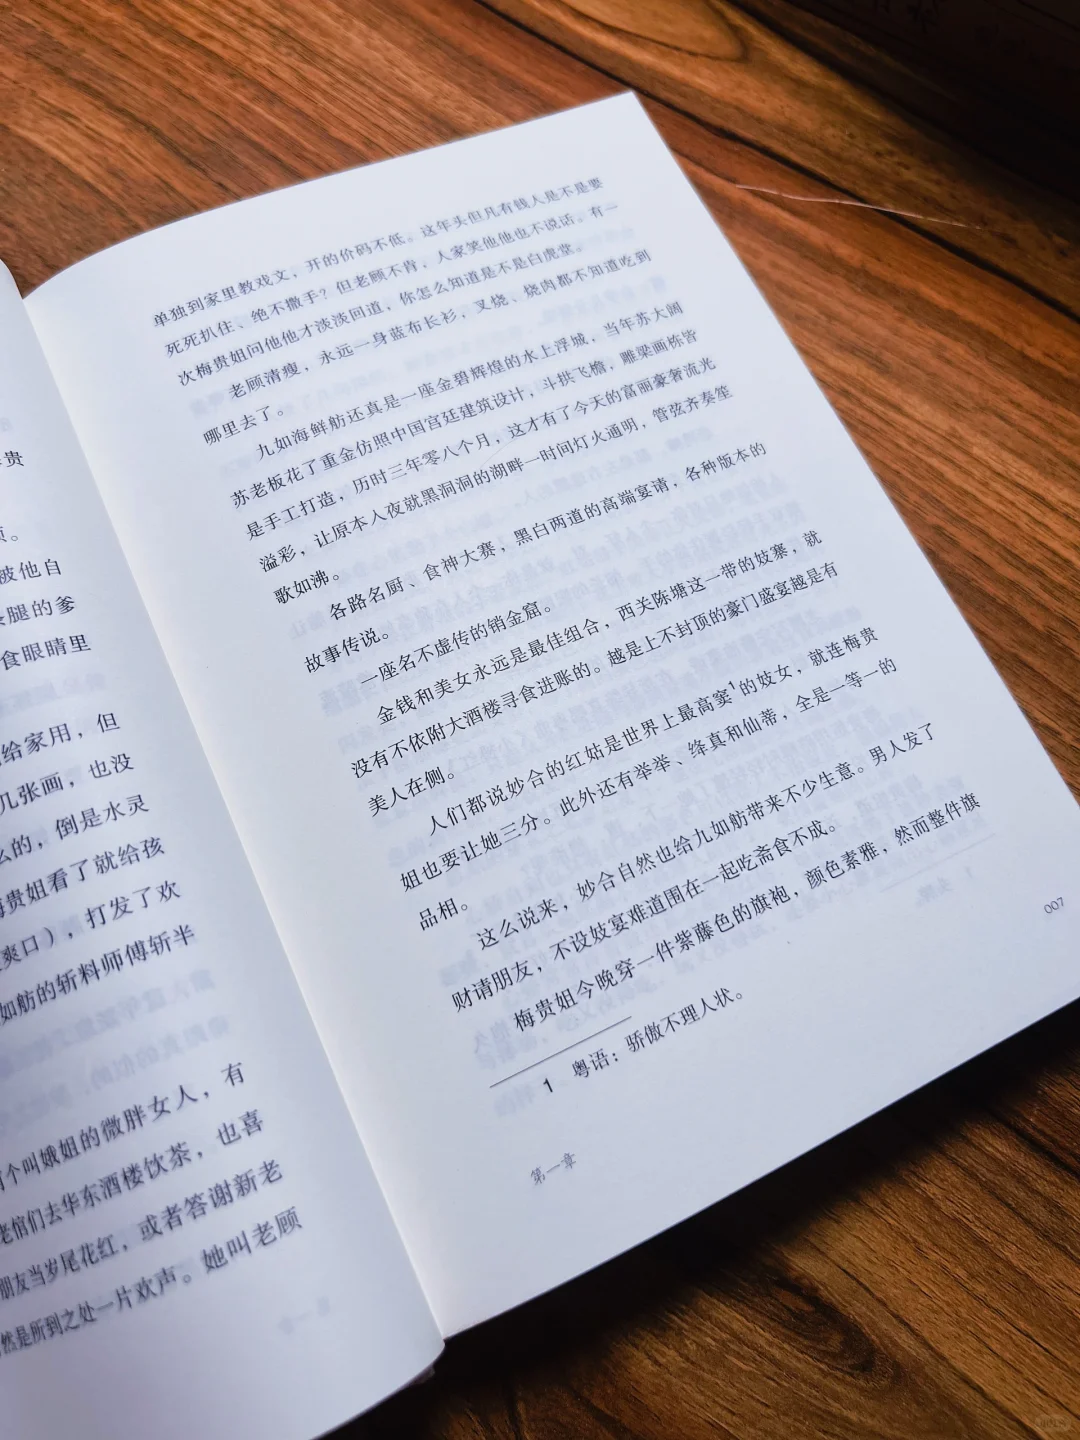 贵
被他自
腿的爹
食眼睛里
给家用，但
几张画，也没
么的，倒是水灵
梅贵姐看了就给孩
爽口），打发了欢
如舫的斩料师傅斩半
个叫娥姐的微胖女人，有
老倌们去华东酒楼饮茶，也喜
朋友当岁尾花红，或者答谢新老
然是所到之处一片欢声。她叫老顾
单独到家里教戏文，开的价码不低。这年头但凡有钱人是不是要
死死扒住、绝不撒手？但老顾不肯，人家笑他他也不说话。有一
次梅贵姐问他他才淡淡回道，你怎么知道是不是白虎堂。
老顾清瘦，永远一身蓝布长衫，叉烧、烧肉都不知道吃到
哪里去了。
九如海鲜舫还真是一座金碧辉煌的水上浮城，当年苏大阔
苏老板花了重金仿照中国宫廷建筑设计，斗拱飞檐，雕梁画栋皆
是手工打造，历时三年零八个月，这才有了今天的富丽豪奢流光
溢彩，让原本入夜就黑洞洞的湖畔一时间灯火通明，管弦齐奏笙
歌如沸。
各路名厨、食神大赛，黑白两道的高端宴请，各种版本的
故事传说。
一座名不虚传的销金窟。
金钱和美女永远是最佳组合，西关陈塘这一带的妓寨，就
没有不依附大酒楼寻食进账的。越是上不封顶的豪门盛宴越是有
美人在侧。
人们都说妙合的红姑是世界上最高窦1的妓女，就连梅贵
姐也要让她三分。此外还有举举、绛真和仙蒂，全是一等一的
品相。
这么说来，妙合自然也给九如舫带来不少生意。男人发了
财请朋友，不设妓宴难道围在一起吃斋食不成。
梅贵姐今晚穿一件紫藤色的旗袍，颜色素雅，然而整件旗
1 粤语：骄傲不理人状。
第一章
007